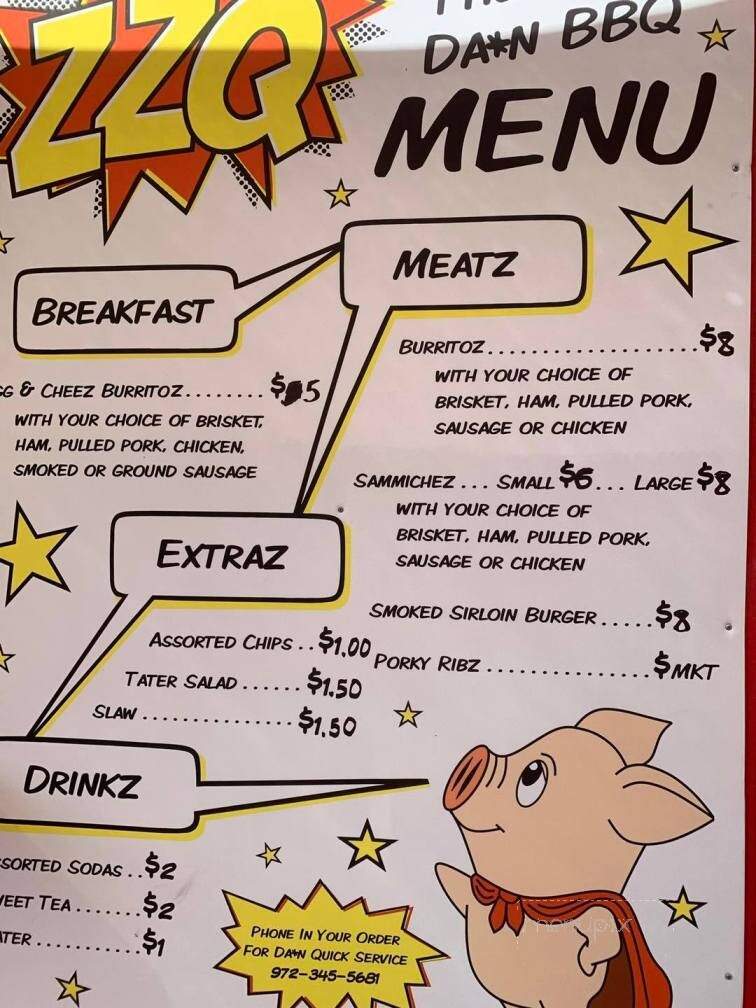 ZZQ
DA*N BBQ
MENU
MEATZ
BREAKFAST
BURRITOZ.....................$8
WITH YOUR CHOICE OF
BRISKET, HAM, PULLED PORK,
SAUSAGE OR CHICKEN
& CHEEZ BURRITOZ........ $5
WITH YOUR CHOICE OF BRISKET,
HAM, PULLED PORK, CHICKEN,
SMOKED OR GROUND SAUSAGE
SAMMICHEZ ... SMALL $6... LARGE $8
WITH YOUR CHOICE OF
BRISKET, HAM, PULLED PORK,
SAUSAGE OR CHICKEN
EXTRAZ
SMOKED SIRLOIN BURGER .....$8
PORKY RIBZ ................$MKT
ASSORTED CHIPS ..$1.00
TATER SALAD ......$1.50
SLAW ...............$1.50
DRINKZ
SSORTED SODAS ..$2
EET TEA .......$2
ATER ...........$1
PHONE IN YOUR ORDER
FOR DA*N QUICK SERVICE
972-345-5681
menupix